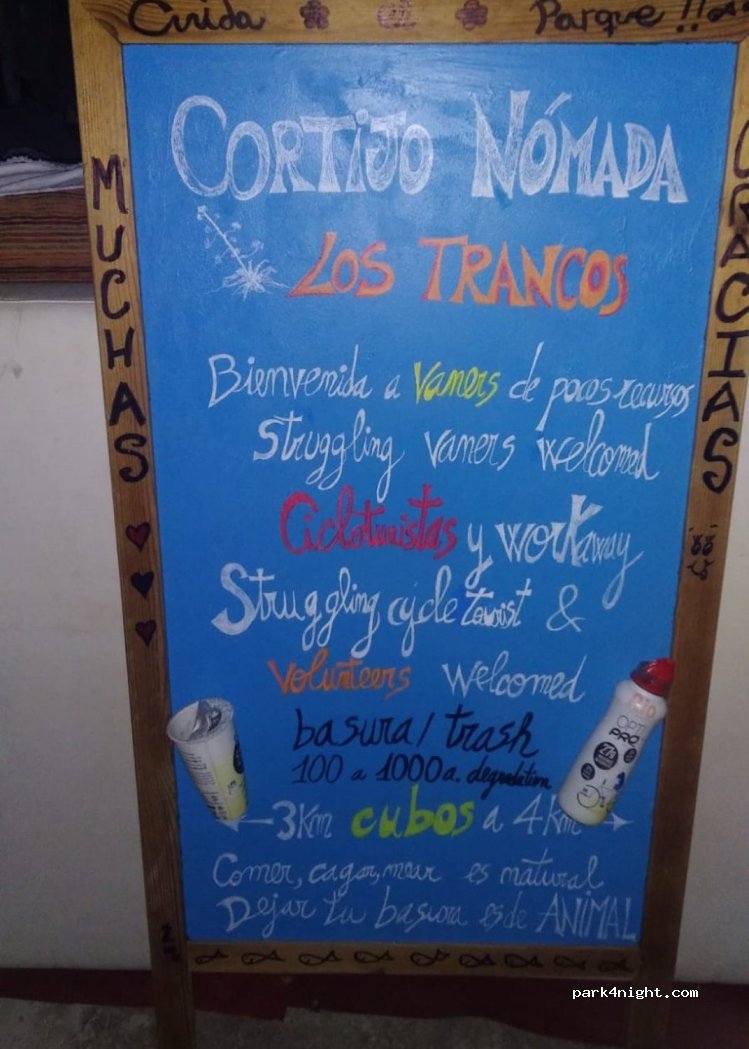 Cuida el Parque !!
MUCHAS
GRACIAS
CORTIJO NÓMADA
LOS TRANCOS
Bienvenida a vaners de pocos recursos
Struggling vaners welcomed
Cicloturistas y workaway
Struggling cycle tourist &
Volunteers welcomed
basura / trash
100 a 1000 a. degradation
3Km cubos a 4 Km
Comer, cagar, mear es natural
Dejar tu basura es de ANIMAL
OPTI
PRO
park4night.com